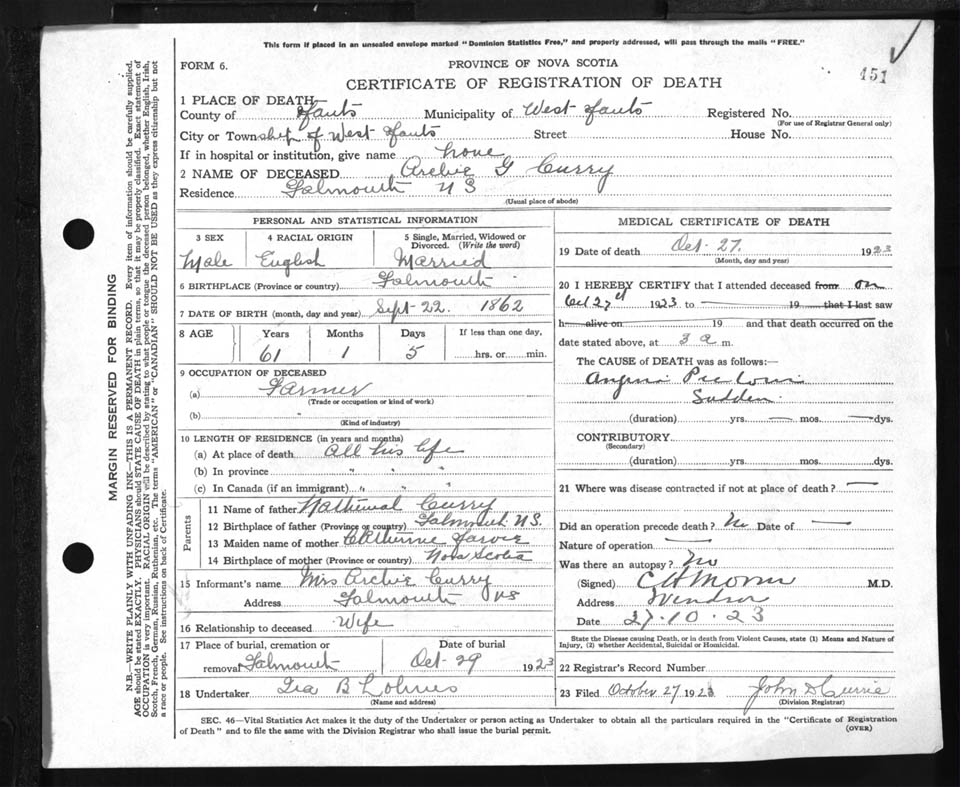 This form if placed in an unsealed envelope marked "Dominion Statistics Free," and properly addressed, will pass through the mails "FREE."
451
FORM 6.
PROVINCE OF NOVA SCOTIA
CERTIFICATE OF REGISTRATION OF DEATH
1 PLACE OF DEATH—
County of Hants Municipality of West Hants Registered No.
(For use of Registrar General only)
City or Township of West Hants Street House No.
If in hospital or institution, give name home
2 NAME OF DECEASED Archie G Curry
Residence Falmouth N S
(Usual place of abode)
PERSONAL AND STATISTICAL INFORMATION
3 SEX 4 RACIAL ORIGIN 5 Single, Married, Widowed or Divorced. (Write the word)
Male English Married
6 BIRTHPLACE (Province or country) Falmouth
7 DATE OF BIRTH (month, day and year) Sept 22. 1862
8 AGE Years Months Days If less than one day,
61 1 5 hrs. or min.
9 OCCUPATION OF DECEASED
(a) Farmer
(Trade or occupation or kind of work)
(b)
(Kind of industry)
10 LENGTH OF RESIDENCE (in years and months)
(a) At place of death All his life
(b) In province " " "
(c) In Canada (if an immigrant) " " "
Parents
11 Name of father Nathaniel Curry
12 Birthplace of father (Province or country) Falmouth N.S.
13 Maiden name of mother Catherine
14 Birthplace of mother (Province or country) Nova Scotia
15 Informant's name Mrs Archie Curry
Address Falmouth NS
16 Relationship to deceased Wife
17 Place of burial, cremation or Date of burial
removal Falmouth Oct 29 1923
18 Undertaker B
(Name and address)
MEDICAL CERTIFICATE OF DEATH
19 Date of death Oct. 27. 1923
(Month, day and year)
20 I HEREBY CERTIFY that I attended deceased from on
Oct 27th 1923 to — 19 that I last saw
h alive on 19 and that death occurred on the
date stated above, at 3 a m.
The CAUSE of DEATH was as follows:
Angina Pectoris
Sudden
(duration) yrs. mos. dys.
CONTRIBUTORY
(Secondary)
(duration) yrs. mos. dys.
21 Where was disease contracted if not at place of death? —
Did an operation precede death? No Date of —
Nature of operation —
Was there an autopsy? No
(Signed) M.D.
Address Windsor
Date 27.10.23
State the Disease causing Death, or in death from Violent Causes, state (1) Means and Nature of Injury, (2) whether Accidental, Suicidal or Homicidal.
22 Registrar's Record Number
23 Filed October 27 1923 John D Currie
(Division Registrar)
SEC. 46—Vital Statistics Act makes it the duty of the Undertaker or person acting as Undertaker to obtain all the particulars required in the "Certificate of Registration
of Death" and to file the same with the Division Registrar who shall issue the burial permit.
(OVER)
MARGIN RESERVED FOR BINDING
N.B.—WRITE PLAINLY WITH UNFADING INK—THIS IS A PERMANENT RECORD. Every item of information should be carefully supplied.
AGE should be stated EXACTLY. PHYSICIANS should STATE CAUSE OF DEATH in plain terms, so that it may be properly classified. Exact statement of
OCCUPATION is very important. RACIAL ORIGIN will be described by stating to what people or tongue the deceased person belonged, whether English, Irish,
Scotch, French, German, Russian, Ruthenian, etc. The terms "AMERICAN" or "CANADIAN" SHOULD NOT BE USED as they express citizenship but not
a race or people. See instructions on back of Certificate.